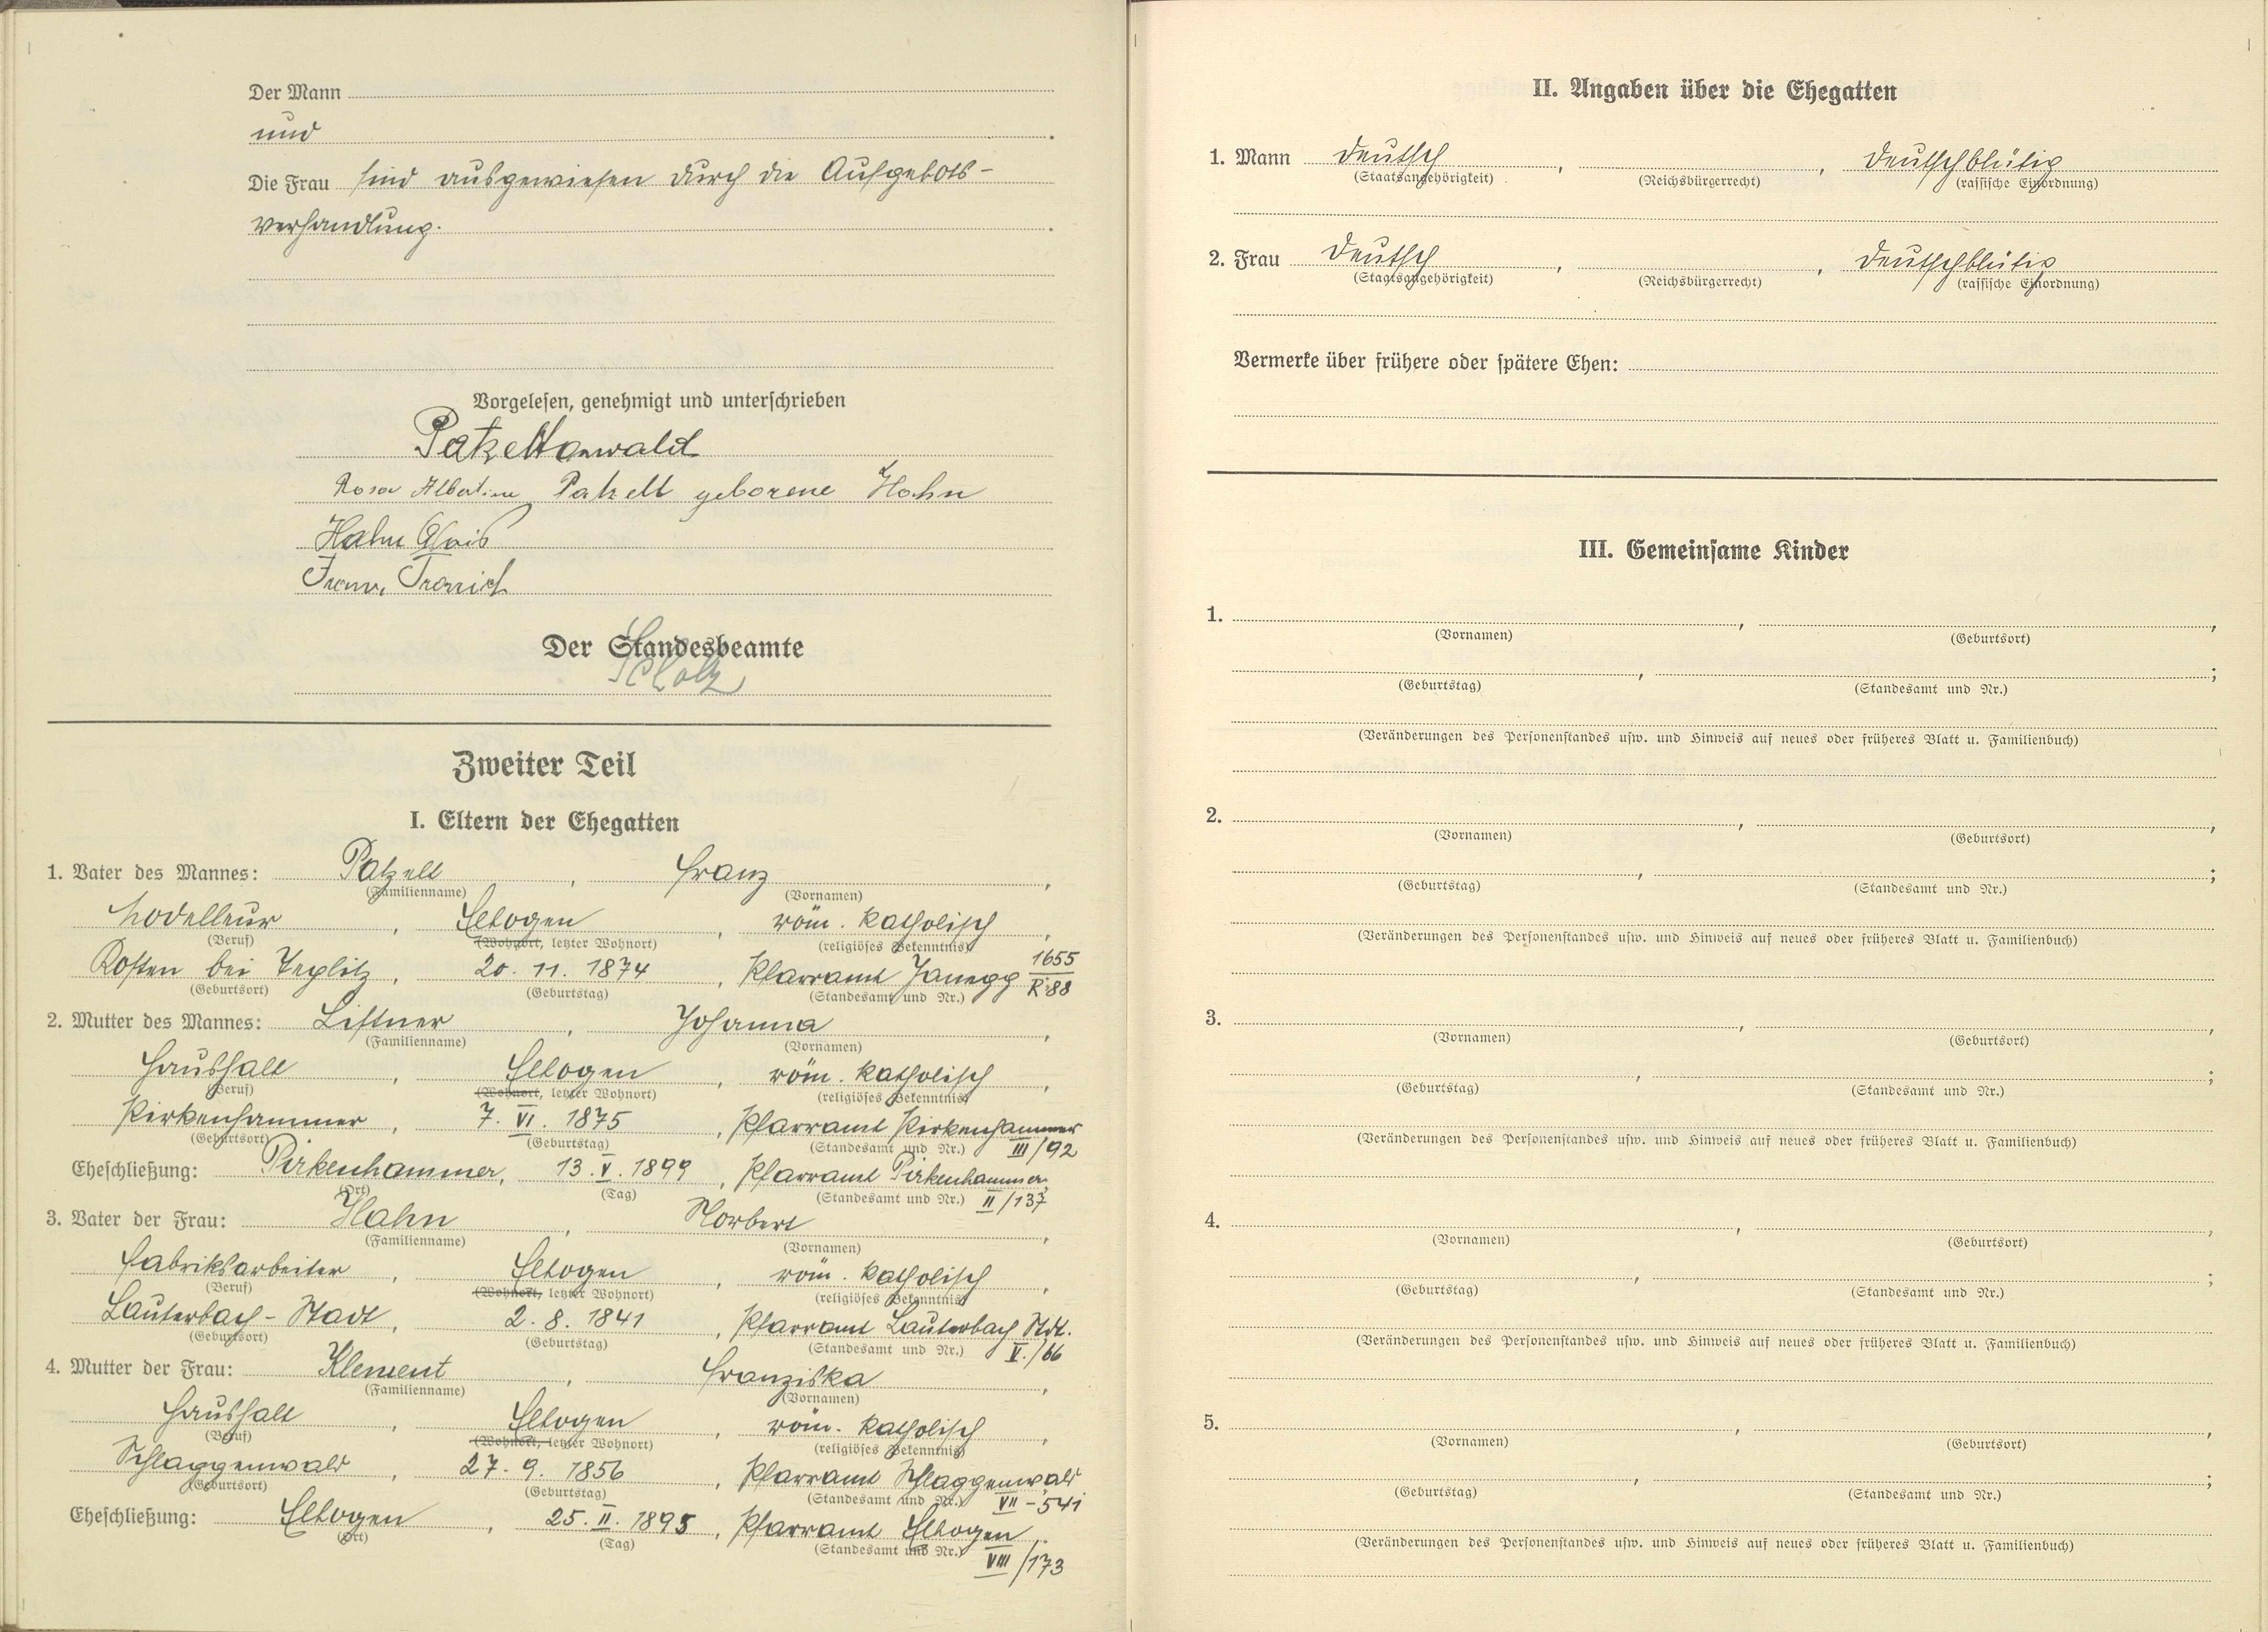 Der Mann
und
Die Frau sind ausgewiesen durch die Aufgebots-
verhandlung.
Vorgelesen, genehmigt und unterschrieben
Patzelt Oswald
Rosa Albertine Patzelt geborene Hahn
Hahn Alois
Franz
Der Standesbeamte
Scholz
Zweiter Teil
I. Eltern der Ehegatten
1. Vater des Mannes: Patzelt, Franz,
(Familienname) (Vornamen)
Modelleur, Elbogen, röm. katholisch,
(Beruf) (Wohnort, letzter Wohnort) (religiöses Bekenntnis)
Kosten bei Teplitz, 20. 11. 1874, Pfarramt Janegg 1655/R:88
(Geburtsort) (Geburtstag) (Standesamt und Nr.)
2. Mutter des Mannes: Listner, Johanna,
(Familienname) (Vornamen)
Haushalt, Elbogen, röm. katholisch,
(Beruf) (Wohnort, letzter Wohnort) (religiöses Bekenntnis)
Pirkenhammer, 7. VI. 1875, Pfarramt Pirkenhammer
(Geburtsort) (Geburtstag) (Standesamt und Nr.) III/92
Eheschließung: Pirkenhammer, 13. V. 1899, Pfarramt Pirkenhammer
(Ort) (Tag) (Standesamt und Nr.) II/137
3. Vater der Frau: Hahn, Norbert,
(Familienname) (Vornamen)
Fabriksarbeiter, Elbogen, röm. katholisch,
(Beruf) (Wohnort, letzter Wohnort) (religiöses Bekenntnis)
Lauterbach-Stadt, 2. 8. 1841, Pfarramt Lauterbach Stdt.
(Geburtsort) (Geburtstag) (Standesamt und Nr.) V./66
4. Mutter der Frau: Klement, Franziska,
(Familienname) (Vornamen)
Haushalt, Elbogen, röm. katholisch,
(Beruf) (Wohnort, letzter Wohnort) (religiöses Bekenntnis)
Schlaggenwald, 27. 9. 1856, Pfarramt Schlaggenwald
(Geburtsort) (Geburtstag) (Standesamt und Nr.) VII-541
Eheschließung: Elbogen, 25. II. 1895, Pfarramt Elbogen
(Ort) (Tag) (Standesamt und Nr.) VIII/173
II. Angaben über die Ehegatten
1. Mann deutsch, , deutschblütig
(Staatsangehörigkeit) (Reichsbürgerrecht) (rassische Einordnung)
2. Frau deutsch, , deutschblütig
(Staatsangehörigkeit) (Reichsbürgerrecht) (rassische Einordnung)
Vermerke über frühere oder spätere Ehen:
III. Gemeinsame Kinder
1. , ,
(Vornamen) (Geburtsort)
, ;
(Geburtstag) (Standesamt und Nr.)
(Veränderungen des Personenstandes usw. und Hinweis auf neues oder früheres Blatt u. Familienbuch)
2. , ,
(Vornamen) (Geburtsort)
, ;
(Geburtstag) (Standesamt und Nr.)
(Veränderungen des Personenstandes usw. und Hinweis auf neues oder früheres Blatt u. Familienbuch)
3. , ,
(Vornamen) (Geburtsort)
, ;
(Geburtstag) (Standesamt und Nr.)
(Veränderungen des Personenstandes usw. und Hinweis auf neues oder früheres Blatt u. Familienbuch)
4. , ,
(Vornamen) (Geburtsort)
, ;
(Geburtstag) (Standesamt und Nr.)
(Veränderungen des Personenstandes usw. und Hinweis auf neues oder früheres Blatt u. Familienbuch)
5. , ,
(Vornamen) (Geburtsort)
, ;
(Geburtstag) (Standesamt und Nr.)
(Veränderungen des Personenstandes usw. und Hinweis auf neues oder früheres Blatt u. Familienbuch)